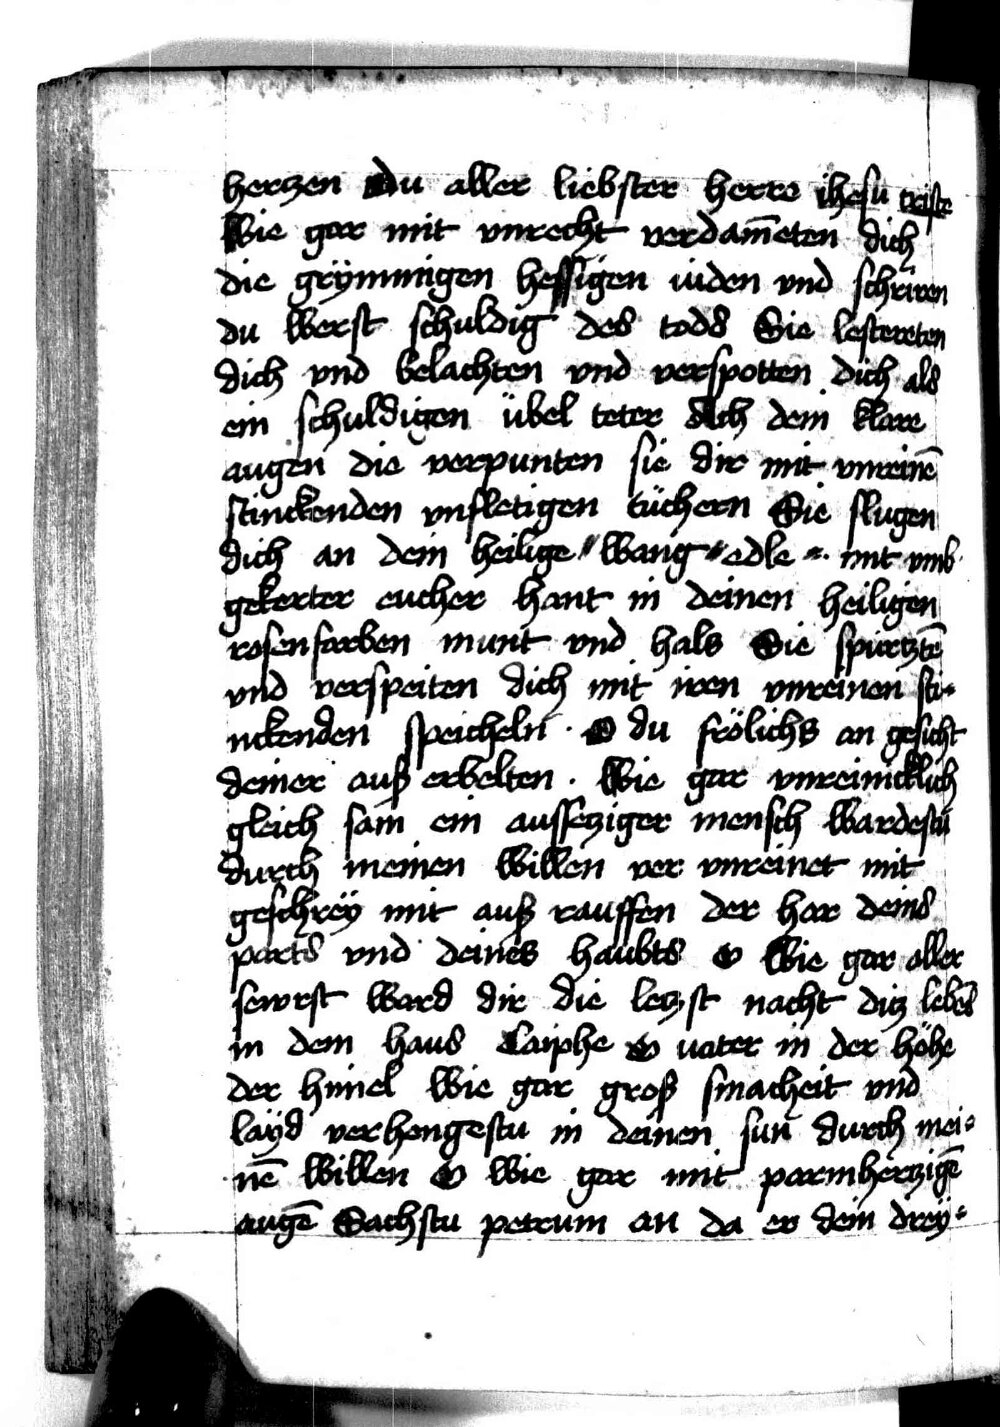 hertzen Du aller liebster herre ihesu criste
Wie gar mit vnrecht verdam̄eten dich
die grymmigen hessigen iuden vnd schriren
du werst schuldig des tods Sie lestereten
dich vnd belachten vnd verspotten dich als
ein schuldigen übel teter dich dein klare
augen die verpunten sie dir mit vnreinē
stinckenden vnfletigen tüchern Sie slugen
dich an dein heilige wang edle mit vmb
gekerter eucher hant in deinen heiligen
rosenfarben munt vnd hals Sie spirtztē
vnd verspeiten dich mit iren vnreinen sti-
nckenden speicheln · O du frölichs an gesicht
deiner auß erbelten · Wie gar vnreinicklich
gleich sam ein aussetziger mensch wardestu
durch meinen willen ver vnreinet mit
geschrey mit auß rauffen der har deins
parts vnd deines haubts O Wie gar aller
sewrst ward dir die letzst nacht ditz lebēs
in dem haus Caiphe O vater in der höhe
der himel Wie gar groß smacheit vnd
layd verhengestu in deinen sun durch mei-
nē willen O wie gar mit parmhertzigē
augē Sachstu petrum an da er dein drey-